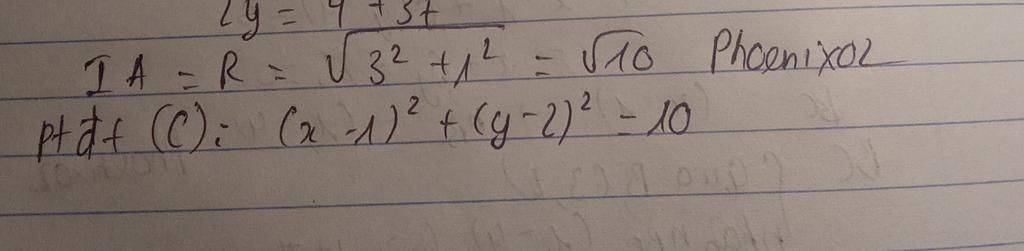 {y = 4 + 3t
IA = R = √(3² + 1²) = √10 Phoenixol
ptđt (C): (x - 1)² + (y - 2)² = 10